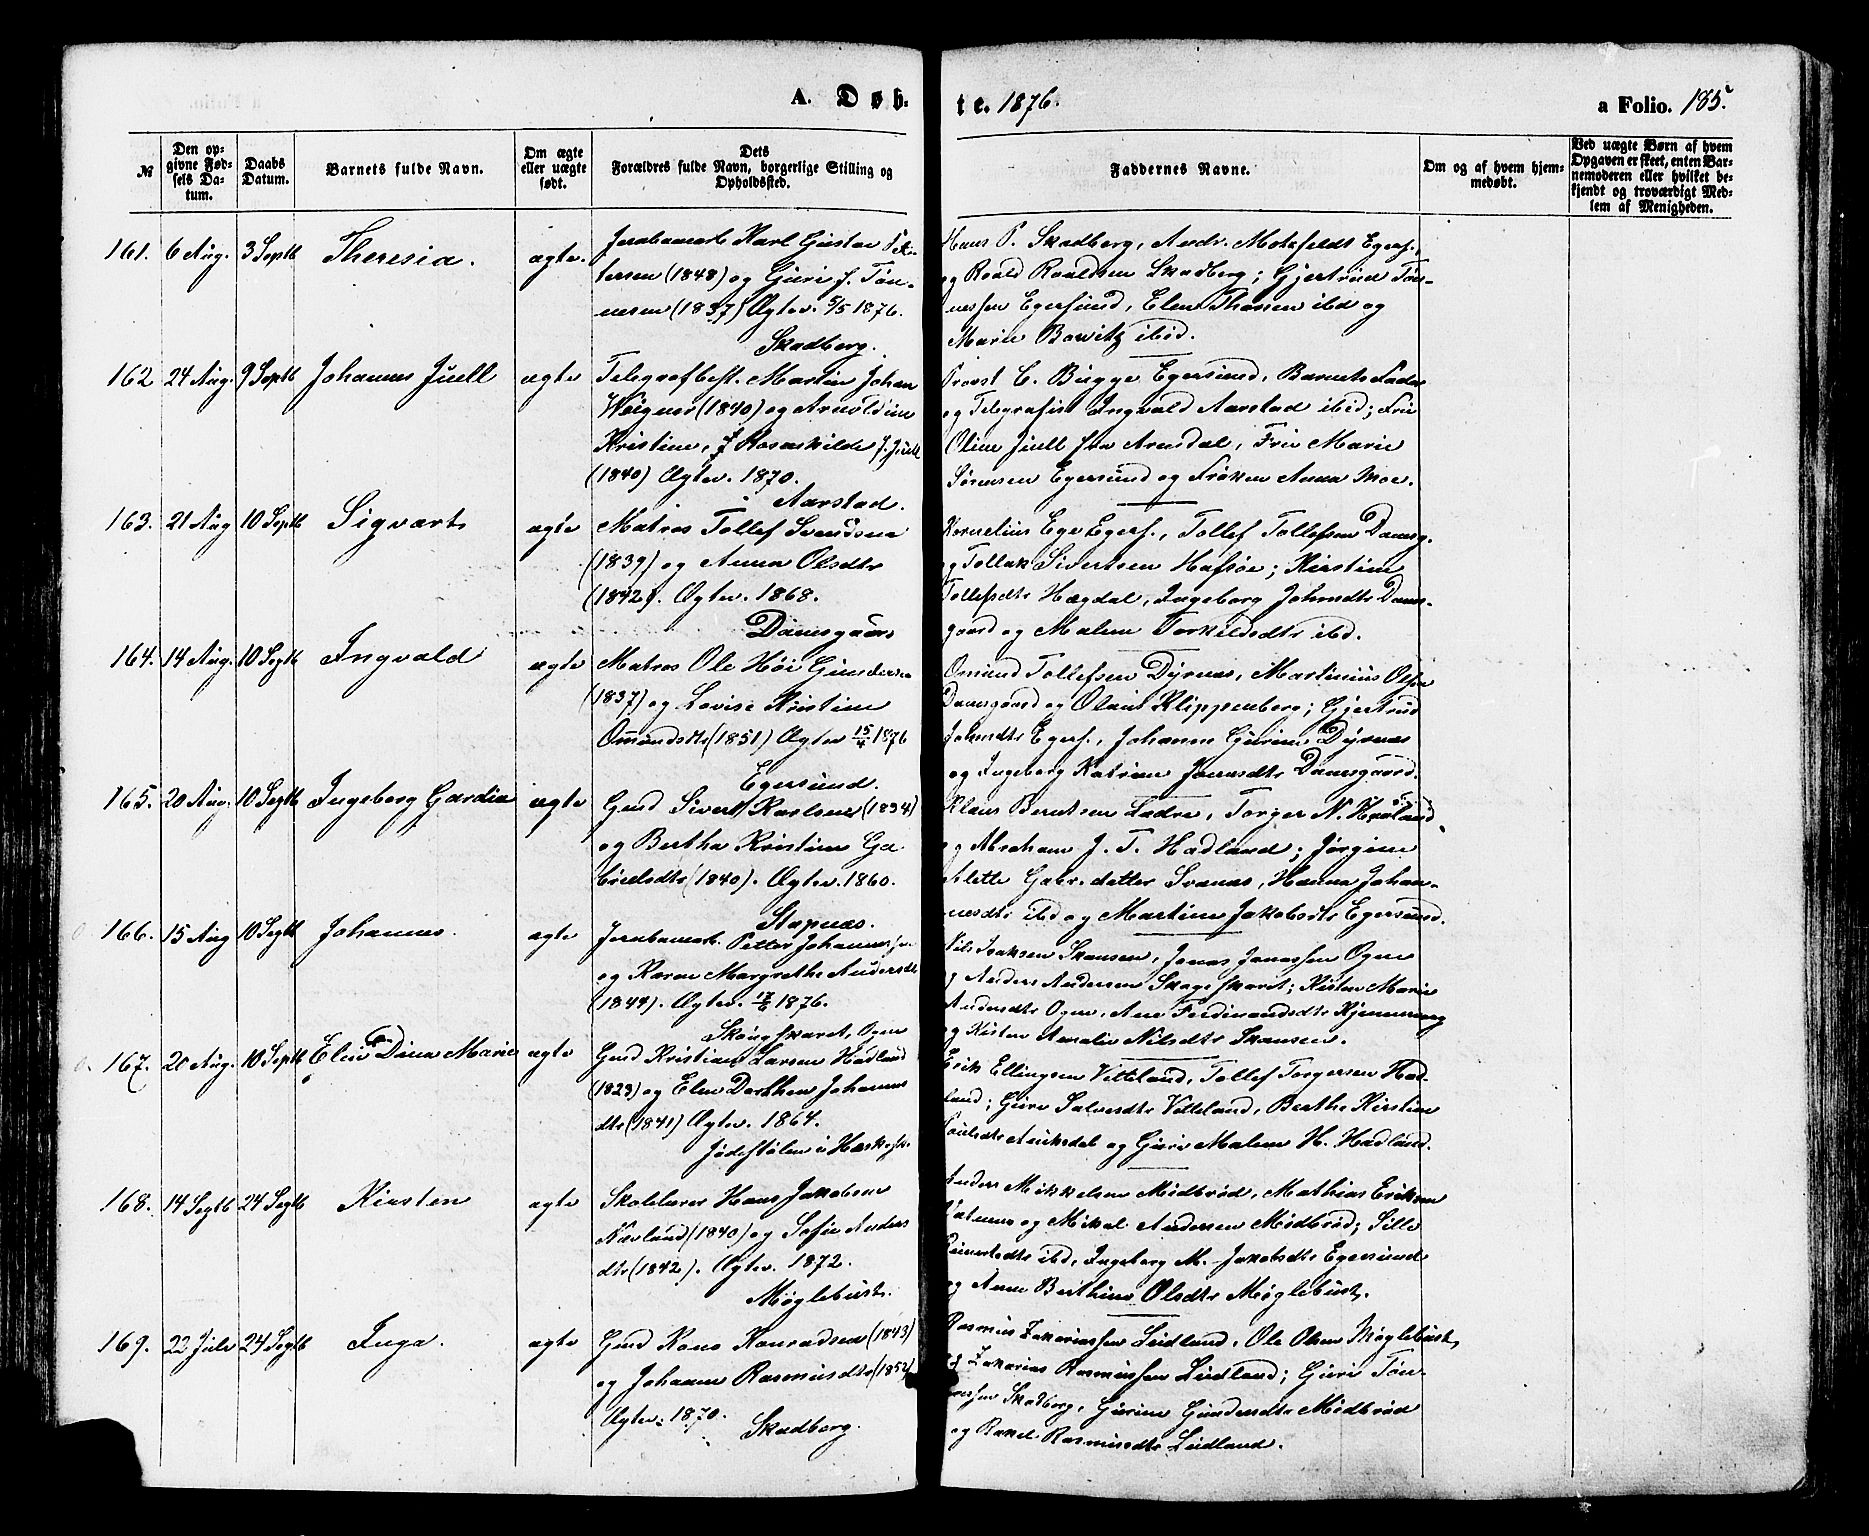 A. Døb-
te. 1876.
a Folio. 185.
№
Den op-
givne Fød-
sels Da-
tum.
Daabs
Datum.
Barnets fulde Navn.
Om ægte
eller uægte
født.
Dets
Forældres fulde Navn, borgerlige Stilling og
Opholdssted.
Faddernes Navne.
Om og af hvem hjem-
medøbt.
Ved uægte Børn af hvem
Opgaven er skeet, enten Bar-
nemoderen eller hvilket be-
kjendt og troværdigt Med-
lem af Menigheden.
161. 6 Aug. 3 Septb Theresia. ægte.
Jernbanearb. Karl Gustav Pet-
tersen (1848) og Guri f. Tøn-
nesen (1837) Ægtev. 5/5 1876.
Skadberg.
Hans P. Skadberg, Andr. Motzfeldt Egers.,
og Roald Roaldsen Skadberg; Gjertrud Tøn-
nessen Egersund, Elen Thorsen ibd og
Marie Bowitz ibid.
162 24 Aug. 9 Septb Johannes Juell ægte
Telegrafbest. Martin Johan
Weigner (1840) og Arnoldine
Kristine, f. Rosenkilde J. Juell
(1840) Ægtev. 1870.
Aarstad.
Provst C. Bugge Egersund, Barnets Fader
og Telegrafist Ingvald Aarstad ibid; Fru
Oline Juell fra Arendal, Fru Marie
Sørensen Egersund og Frøken Anna Moe.
163. 21 Aug 10 Septb Sigvart ægte
Matros Tollef Svendsen
(1839) og Anna Olsdtr
(1842). Ægtev. 1868.
Damsgaard
Kornelius Ege Egers., Tollef Tollefsen Damsg.
og Tollak Sivertsen Hafsøe; Kirstine
Tollefsdtr Hægdal, Ingeborg Johnsdtr Dams-
gaard og Malene Torkildsdtr ibd.
164. 14 Aug. 10 Septb Ingvald ægte
Matros Ole Høi Gundersen
(1837) og Lovise Kristine
Omundsdtr (1851) Ægtev 15/4 1876
Egersund.
Omund Tollefsen Dyrnæs, Martinius Olsen
Damsgaard og Olaus Klippenberg; Gjertrud
Johnsdtr Egers., Johanne Gurine Dyrnæs
og Ingeborg Katrine Jonasdtr Damsgaard.
165. 20 Aug. 10 Septb Ingeborg Gardia ægte
Gmd Sivert Karlsen (1834)
og Bertha Kristine Ga-
brielsdtr (1840). Ægtev. 1860.
Stapnæs.
Klaus Berntsen Ladre, Torger N. Havland,
og Abraham J. T. Hadland; Jørgine
Alette Gabr.datter Svanæs, Hanna Johan-
nesdtr ibd og Martine Jakobsdtr Egersund.
166. 15 Aug 10 Septb Johannes. ægte
Jernbanearb. Petter Johannessen
og Karen Margrethe Andersdtr
(1849). Ægtev. 1876.
Skougskaret, Ogne
Nils Isaksen Skansen, Jonas Jonassen Ogne
og Anders Andersen Skogskaret; Kirsten Marie
Andersdtr Ogne, Ane Ferdinandsdtr
og Kirsten Amalie Nilsdtr Skansen.
167. 20 Aug. 10 Septb Elen Dina Marie ægte
Gmd Kristian Larsen Hadland
(1823) og Elen Dorthea Johannes
dtr (1841) Ægtev. 1864.
Jødestølen i
Erik Ellingsen Vetteland, Tollef Torgersen Had-
land; Guri Salvesdtr Vetteland, Berthe Kirstine
og Guri Malene H. Hadland.
168. 14 Septb 24 Septb Kirsten ægte
Skolelærer Hans Jakobsen
Nævland (1840) og Sofie Anders
dtr (1842). Ægtev. 1872.
Møglebust.
Anders Mikkelsen Midbrød, Mathias Eriksen
og Mikal Andersen Midbrød; Sille
ibd, Ingeborg M. Jakobsdtr Egersund
og Anne Berthine Olsdtr Møglebust.
169. 22 Juli 24 Septb Inga. ægte
Gmd Kono Konradsen (1843)
og Johanne Rasmusdtr (1852)
Ægtev. 1870.
Skadberg.
Rasmus Zakariassen Leidland, Ole Olsen Møglebust,
og Zakarias Rasmussen Leidland; Guri Tøn-
nessen Skadberg, Gurine Gundersdtr Midbrød
og Rakel Rasmusdtr Leidland.